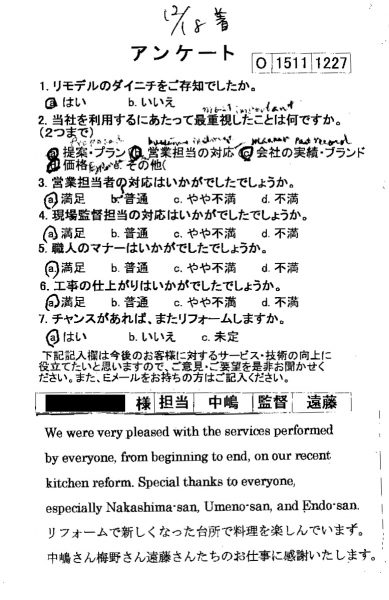 12/18 着
アンケート
O 1511 1227
1. リモデルのダイニチをご存知でしたか。
a はい b. いいえ
most important
2. 当社を利用するにあたって最重視したことは何ですか。
(2つまで)
a 提案・プラン b 営業担当の対応 c 会社の実績・ブランド
d 価格 その他(
3. 営業担当者の対応はいかがでしたでしょうか。
a. 満足 b. 普通 c. やや不満 d. 不満
4. 現場監督担当の対応はいかがでしたでしょうか。
a. 満足 b. 普通 c. やや不満 d. 不満
5. 職人のマナーはいかがでしたでしょうか。
a. 満足 b. 普通 c. やや不満 d. 不満
6. 工事の仕上がりはいかがでしたでしょうか。
a. 満足 b. 普通 c. やや不満 d. 不満
7. チャンスがあれば、またリフォームしますか。
a. はい b. いいえ c. 未定
下記記入欄は今後のお客様に対するサービス・技術の向上に
役立てたいと思いますので、ご意見・ご要望を是非お聞かせく
ださい。また、Eメールをお持ちの方はご記入ください。
様 担当 中嶋 監督 遠藤
We were very pleased with the services performed
by everyone, from beginning to end, on our recent
kitchen reform. Special thanks to everyone,
especially Nakashima-san, Umeno-san, and Endo-san.
リフォームで新しくなった台所で料理を楽しんでいます。
中嶋さん梅野さん遠藤さんたちのお仕事に感謝いたします。